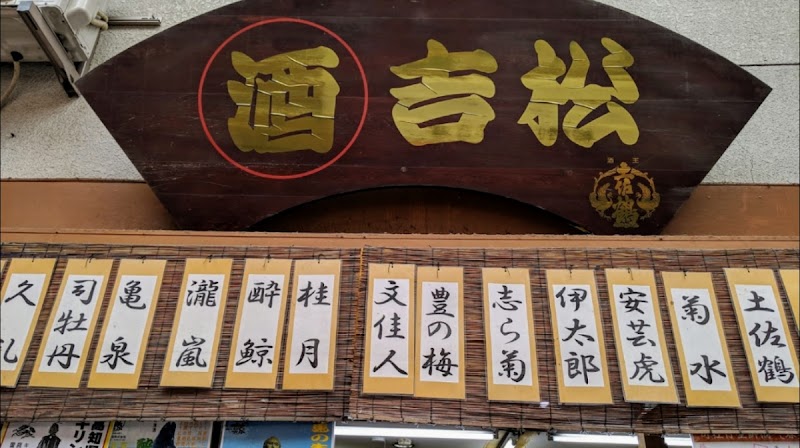 松吉酒
酒王
土佐鶴
土佐鶴
菊水
安芸虎
伊太郎
志ら菊
豊の梅
文佳人
桂月
酔鯨
瀧嵐
亀泉
司牡丹
久礼